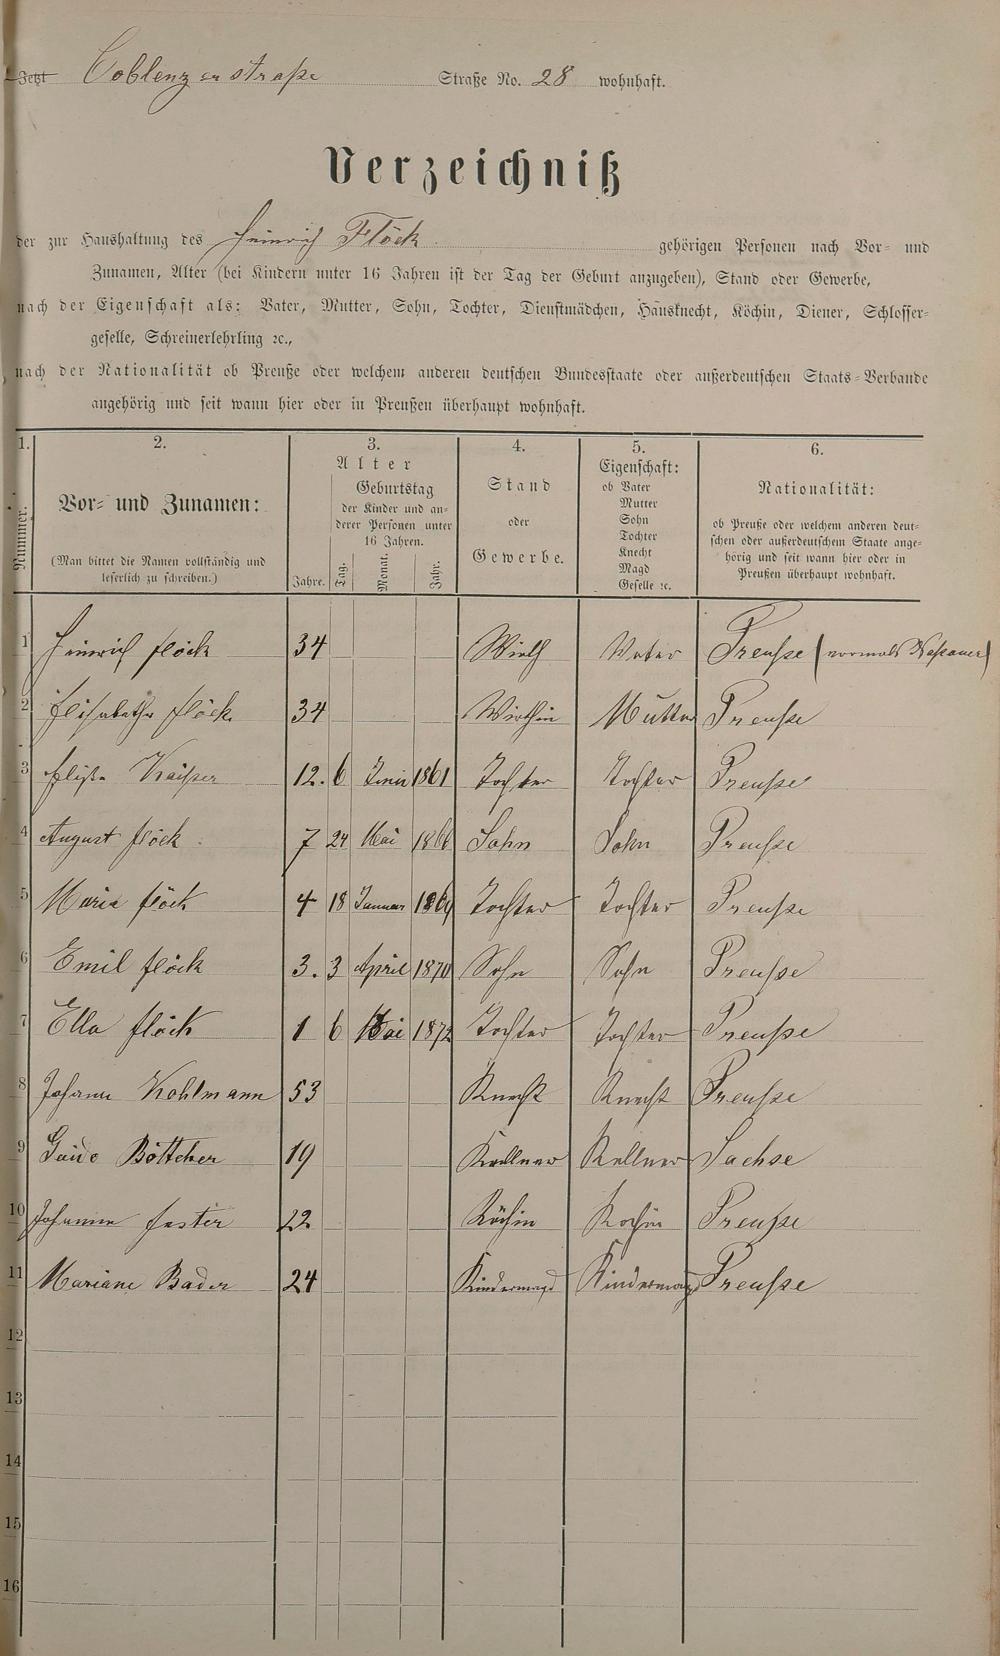 Jetzt Coblenzerstraße Straße No. 28 wohnhaft.
Verzeichniß
der zur Haushaltung des Heinrich Flöck gehörigen Personen nach Vor- und
Zunamen, Alter (bei Kindern unter 16 Jahren ist der Tag der Geburt anzugeben), Stand oder Gewerbe,
nach der Eigenschaft als: Vater, Mutter, Sohn, Tochter, Dienstmädchen, Hausknecht, Köchin, Diener, Schlosser-
geselle, Schreinerlehrling ꝛc.,
nach der Nationalität ob Preuße oder welchem anderen deutschen Bundesstaate oder außerdeutschen Staats-Verbande
angehörig und seit wann hier oder in Preußen überhaupt wohnhaft.
1. 2. 3. 4. 5. 6.
Nummer.
Vor- und Zunamen:
(Man bittet die Namen vollständig und
leserlich zu schreiben.)
Alter
Geburtstag
der Kinder und an-
derer Personen unter
16 Jahren.
Jahre. Tag. Monat. Jahr.
Stand
oder
Gewerbe.
Eigenschaft:
ob Vater
Mutter
Sohn
Tochter
Knecht
Magd
Geselle ꝛc.
Nationalität:
ob Preuße oder welchem anderen deut-
schen oder außerdeutschem Staate ange-
hörig und seit wann hier oder in
Preußen überhaupt wohnhaft.
1 Heinrich Flöck 34 Wirth Vater Preuße (vormals Naßauer)
2 Elisabetha Flöck 34 Wirthin Mutter Preuße
3 Elise 12. 6 Juni 1861 Tochter Tochter Preuße
4 August Flöck 7 24 Mai 1866 Sohn Sohn Preuße
5 Maria Flöck 4 18 Januar 1869 Tochter Tochter Preuße
6 Emil Flöck 3. 3 April 1870 Sohn Sohn Preuße
7 Ella Flöck 1 6 Mai 1872 Tochter Tochter Preuße
8 Johann Kohlmann 53 Knecht Knecht Preuße
9 Guido Böttcher 19 Kellner Kellner Sachse
10 Johanna Faster 22 Köchin Kochin Preuße
11 Mariane Bader 24 Kindermagd Kindermagd Preuße
12
13
14
15
16